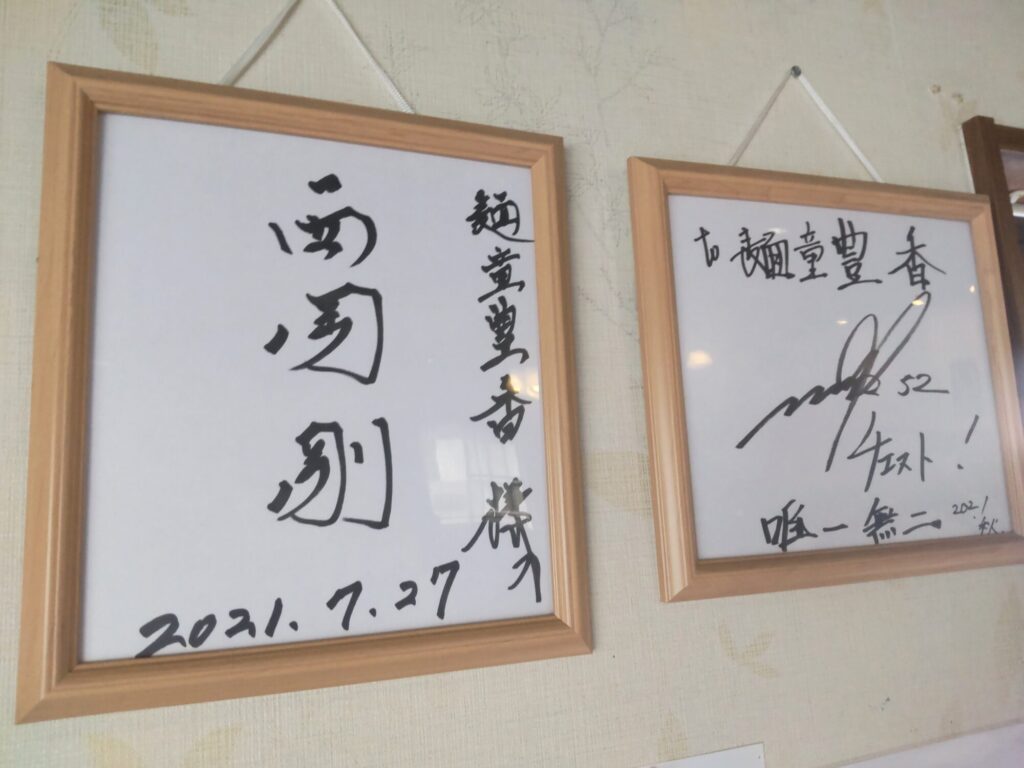 麺童豊香 様
西岡剛
2021.7.27
to 麺童豊香
52
チェスト!
唯一無二
2021
秋